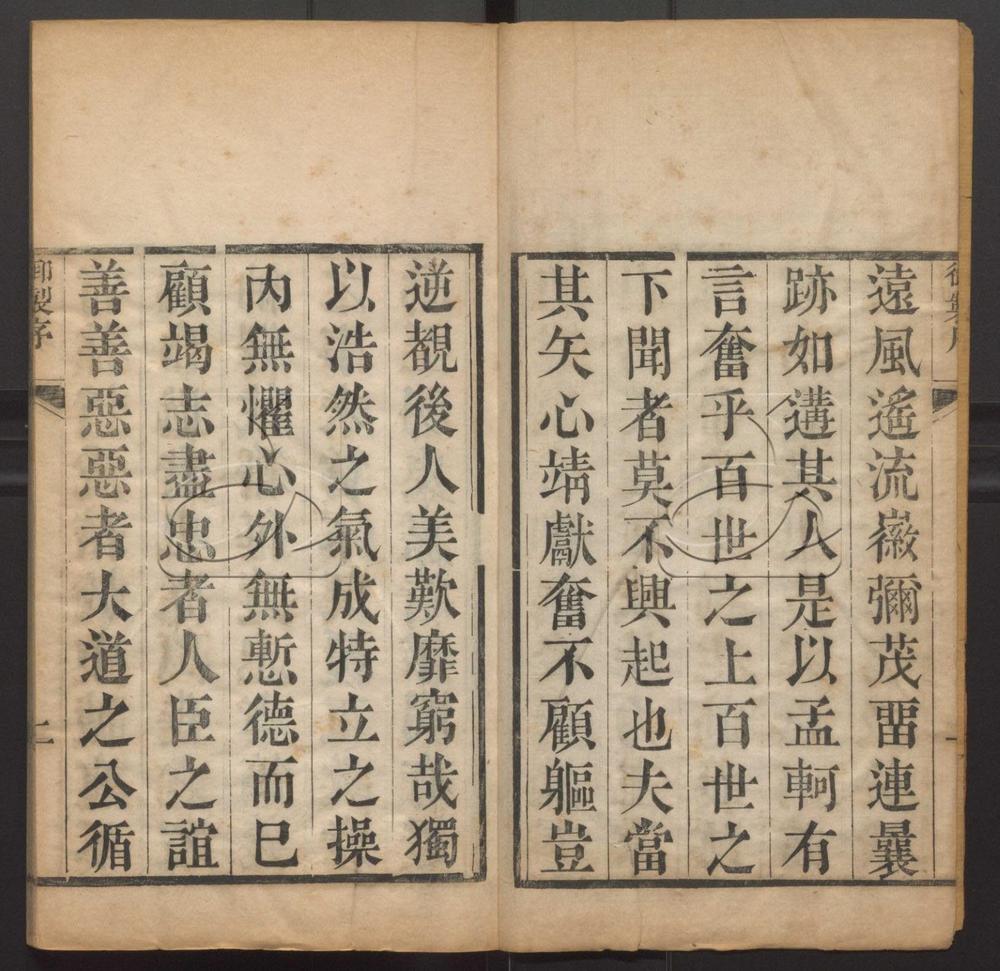 遠風遙流徽彌茂畱連曩
跡如遘其人是以孟軻有
言奮乎百世之上百世之
下聞者莫不興起也夫當
其矢心靖獻奮不顧軀豈
逆覩後人美歎靡窮哉獨
以浩然之氣成特立之操
內無懼心外無慙德而巳
顧竭志盡忠者人臣之誼
善善惡惡者大道之公循
御製序
二